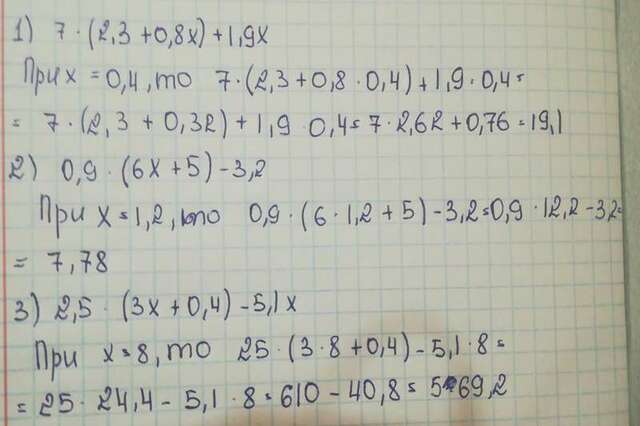 1) 7 · (2,3 + 0,8x) + 1,9x
При x = 0,4, то 7 · (2,3 + 0,8 · 0,4) + 1,9 · 0,4 =
= 7 · (2,3 + 0,32) + 1,9 · 0,4 = 7 · 2,62 + 0,76 = 19,1
2) 0,9 · (6x + 5) - 3,2
При x = 1,2, то 0,9 · (6 · 1,2 + 5) - 3,2 = 0,9 · 12,2 - 3,2 =
= 7,78
3) 2,5 · (3x + 0,4) - 5,1x
При x = 8, то 25 · (3 · 8 + 0,4) - 5,1 · 8 =
= 25 · 24,4 - 5,1 · 8 = 610 - 40,8 = 569,2